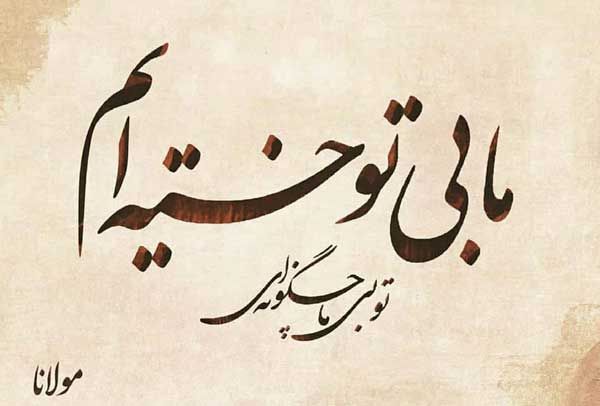 ما بی تو خسته ایم
تو بی ما چگونه ای
مولانا